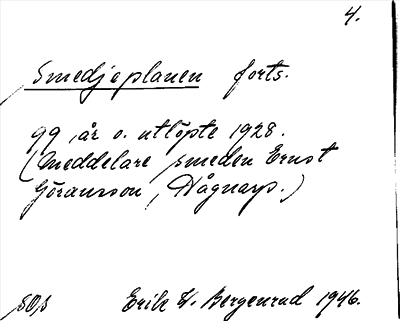 4.
Smedjeplanen forts.
99 år o. utlöpte 1928.
(Meddelare, smeden Ernst
Göransson, Hågnarp.)
Erik W. Bergenrud 1946.